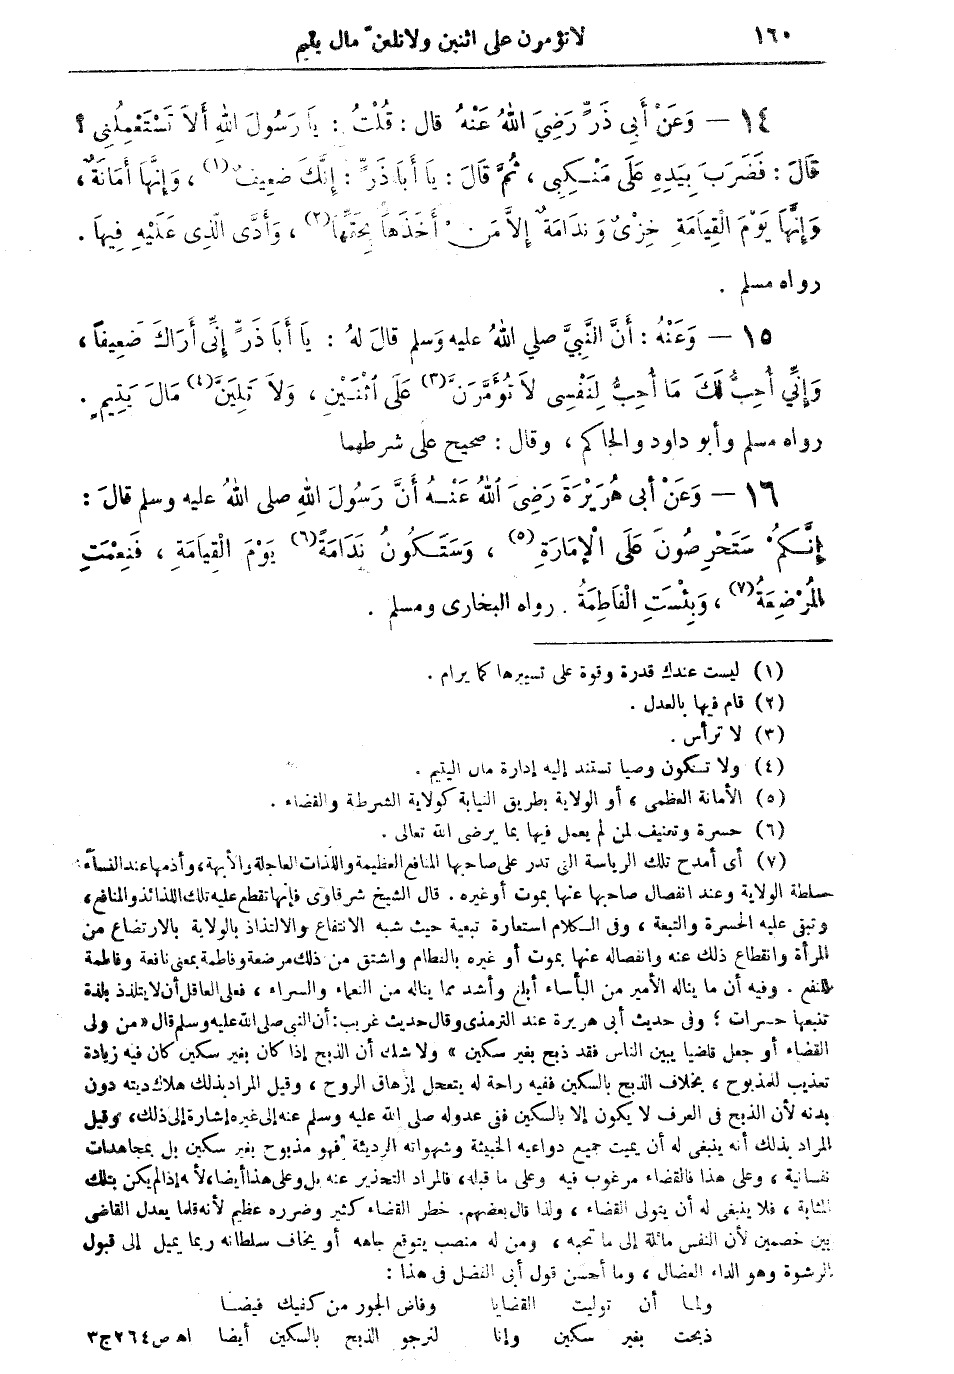 ١٦٠
لا تؤمرن على اثنين ولا تلين مال يتيم
١٤ — وَعَنْ أَبِي ذَرٍّ رَضِيَ اللهُ عَنْهُ قال : قُلْتُ : يا رَسُولَ اللهِ أَلَا تَسْتَعْمِلُنِى ؟
قَالَ : فَضَرَبَ بِيَدِهِ عَلَى مَنْكِبِى ، ثُمَّ قَالَ : يا أَبَا ذَرٍّ : إِنَّكَ ضَعِيفٌ (١) ، وَإِنَّهَا أَمَانَةٌ ،
وَإِنَّهَا يَوْمَ الْقِيَامَةِ خِزْىٌ وَنَدَامَةٌ إِلاَّ مَنْ أَخَذَهَا بِحَقِّهَا (٢) ، وَأَدَّى الَّذِى عَلَيْهِ فِيهَا .
رواه مسلم .
١٥ — وَعَنْهُ : أَنَّ النَّبِيَّ صلى اللهُ عليه وَسلم قالَ لهُ : يا أَبَا ذَرٍّ إِنِّى أَرَاكَ ضَعِيفاً ،
وَإِنِّي أُحِبُّ لَكَ مَا أُحِبُّ لِنَفْسِى لاَ تُؤَمَّرَنَّ (٣) عَلَى اثْنَيْنِ ، وَلاَ تَلِيَنَّ (٤) مَالَ يَتِيمٍ .
رواه مسلم وأبو داود والحاكم ، وقال : صحيح على شرطهما
١٦ — وَعَنْ أبى هُرَيْرَةَ رَضِىَ اللهُ عَنْهُ أَنَّ رَسُولَ اللهِ صلى اللهُ عليه وسلم قالَ :
إِنَّكُمْ سَتَحْرِصُونَ عَلَى الْإِمَارَةِ (٥) ، وَسَتَكُونُ نَدَامَةً (٦) يَوْمَ الْقِيَامَةِ ، فَنِعْمَتِ
المُرْضِعَةُ (٧) ، وَبِئْسَتِ الْفَاطِمَةُ . رواه البخارى ومسلم .
(١) ليست عندك قدرة وقوة على تسييرها كما يرام .
(٢) قام فيها بالعدل .
(٣) لا ترأس .
(٤) ولا تكون وصيا تستند إليه إدارة مال اليتيم .
(٥) الأمانة العظمى ، أو الولاية بطريق النيابة كولاية الشرطة والقضاء .
(٦) حسرة وتعنيف لمن لم يعمل فيها بما يرضى الله تعالى .
(٧) أى أمدح تلك الرياسة التى تدر على صاحبها المنافع العظيمة واللذات العاجلة والأبهة، وأذمها عند
سلطة الولاية وعند انفصال صاحبها عنها بموت أو غيره . قال الشيخ شرقاوى فإنها تقطع عليه تلك اللذائذ والمنافع،
وتبقى عليه الحسرة والتبعة ، وفى الكلام استعارة تبعية حيث شبه الانتفاع والالتذاذ بالولاية بالارتضاع من
المرأة وانقطاع ذلك عنه وانفصاله عنها بموت أو غيره بالفطام واشتق من ذلك مرضعة وفاطمة بمعنى نافعة وفاطمة
للنفع . وفيه أن ما يناله الأمير من البأساء أبلغ وأشد مما يناله من النعماء والسراء ، فعلى العاقل أن لا يتلذذ بلذة
تتبعها حسرات ؛ وفى حديث أبى هريرة عند الترمذى وقال حديث غريب : أن النبى صلى الله عليه وسلم قال « من ولى
القضاء أو جعل قاضيا بين الناس فقد ذبح بغير سكين » ولا شك أن الذبح إذا كان بغير سكين كان فيه زيادة
تعذيب للمذبوح ، بخلاف الذبح بالسكين ففيه راحة له بتعجل إزهاق الروح ، وقيل المراد بذلك هلاك دينه دون
بدنه لأن الذبح فى العرف لا يكون إلا بالسكين ففى عدوله صلى الله عليه وسلم عنه إلى غيره إشارة إلى ذلك، وقيل
المراد بذلك أنه ينبغى له أن يميت جميع دواعيه الخبيثة وشهواته الرديئة فهو مذبوح بغير سكين بل بمجاهدات
نفسانية ، وعلى هذا فالقضاء مرغوب فيه وعلى ما قبله، فالمراد التحذير عنه بل وعلى هذا أيضا، لأنه إذا لم يكن بتلك
المثابة ، فلا ينبغى له أن يتولى القضاء ، ولذا قال بعضهم. خطر القضاء كثير وضرره عظيم لأنه قلما يعدل القاضى
بين خصمين لأن النفس مائلة إلى ما تحبه ، ومن له منصب يتوقع جاهه أو يخاف سلطانه ربما يميل إلى قبول
الرشوة وهو الداء العضال ، وما أحسن قول أبى الفضل فى هذا :
ولما أن توليت القضايا وفاض الجور من كفيك فيضا
ذبحت بغير سكين وإنا لنرجو الذبح بالسكين أيضا اه ص ٢٦٤ ج ٣